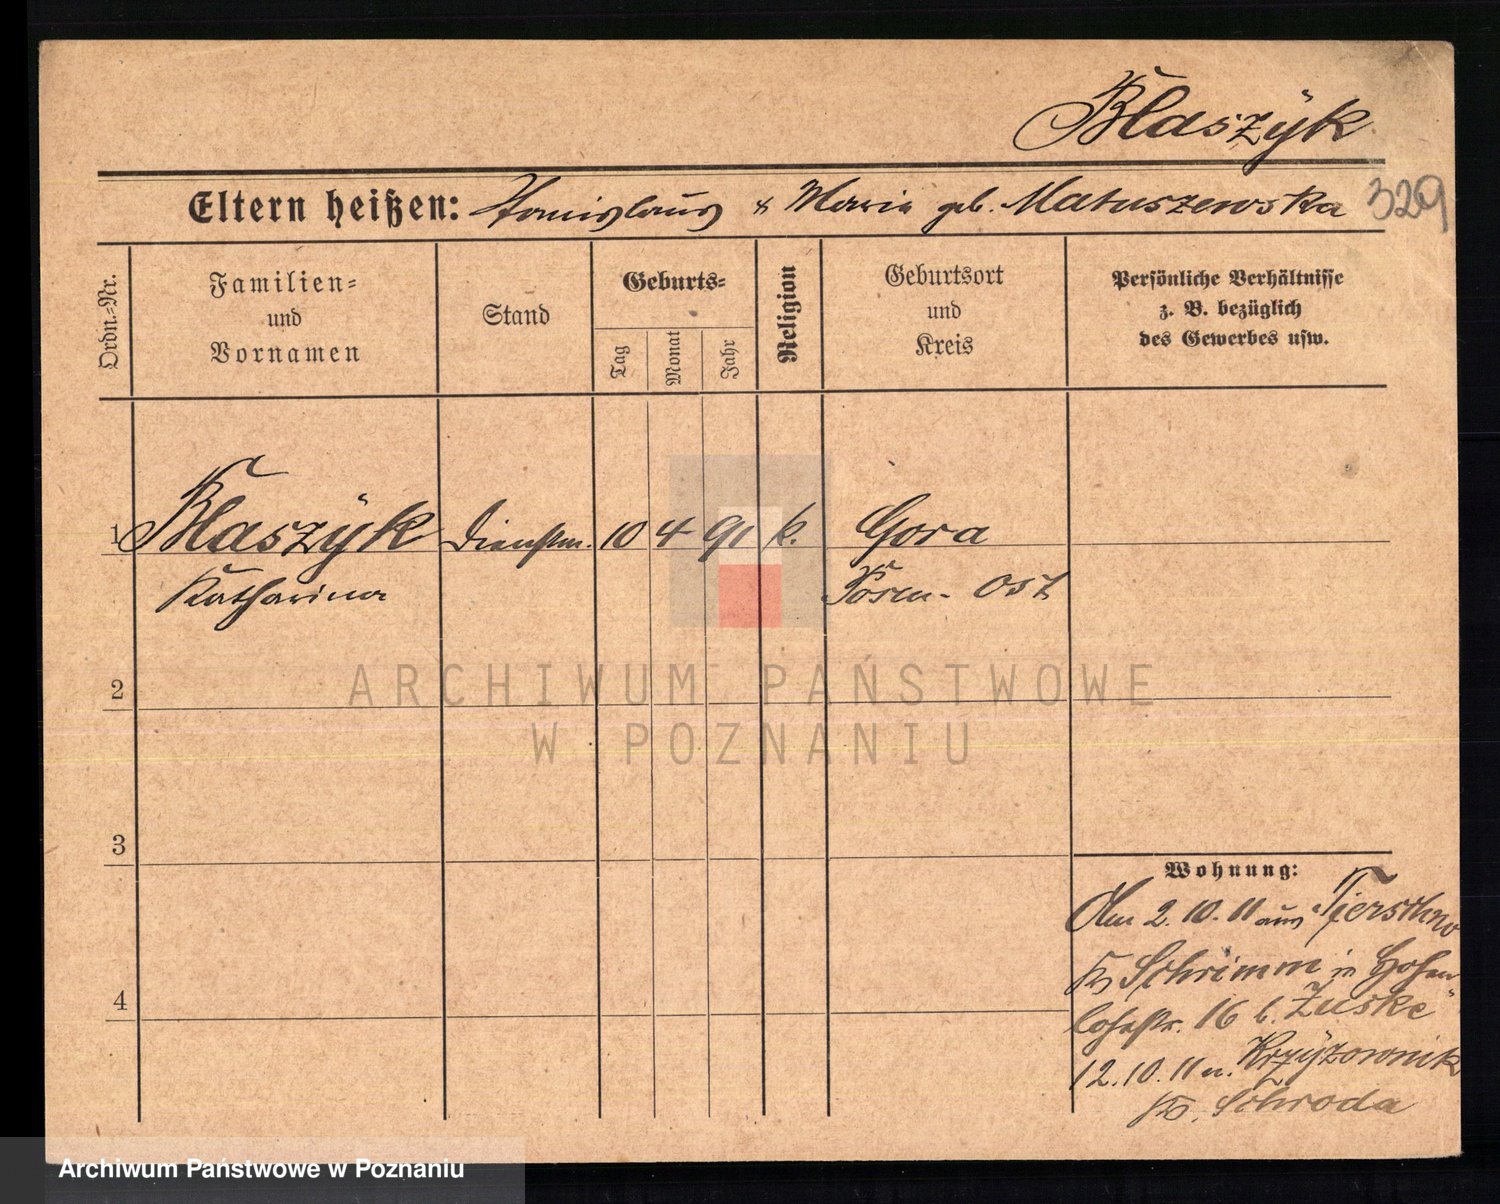 Blaszÿk
Eltern heißen: Stanislaus & Maria geb. Matuszewska 329
Ordn.-Nr.
Familien-
und
Vornamen
Stand
Geburts-
Tag
Monat
Jahr
Religion
Geburtsort
und
Kreis
Persönliche Verhältnisse
z. B. bezüglich
des Gewerbes usw.
1 Blaszÿk Dienstm. 10 4 91 k. Gora
Katharina Posen-Ost
2
ARCHIWUM PAŃSTWOWE
W POZNANIU
3
Wohnung:
Am 2.10.11 aus
Ks Schrimm in Hohen
lohestr. 16 b. Zuske
4
12.10.11 n. Krzÿzownik
Ks. Schroda
Archiwum Państwowe w Poznaniu